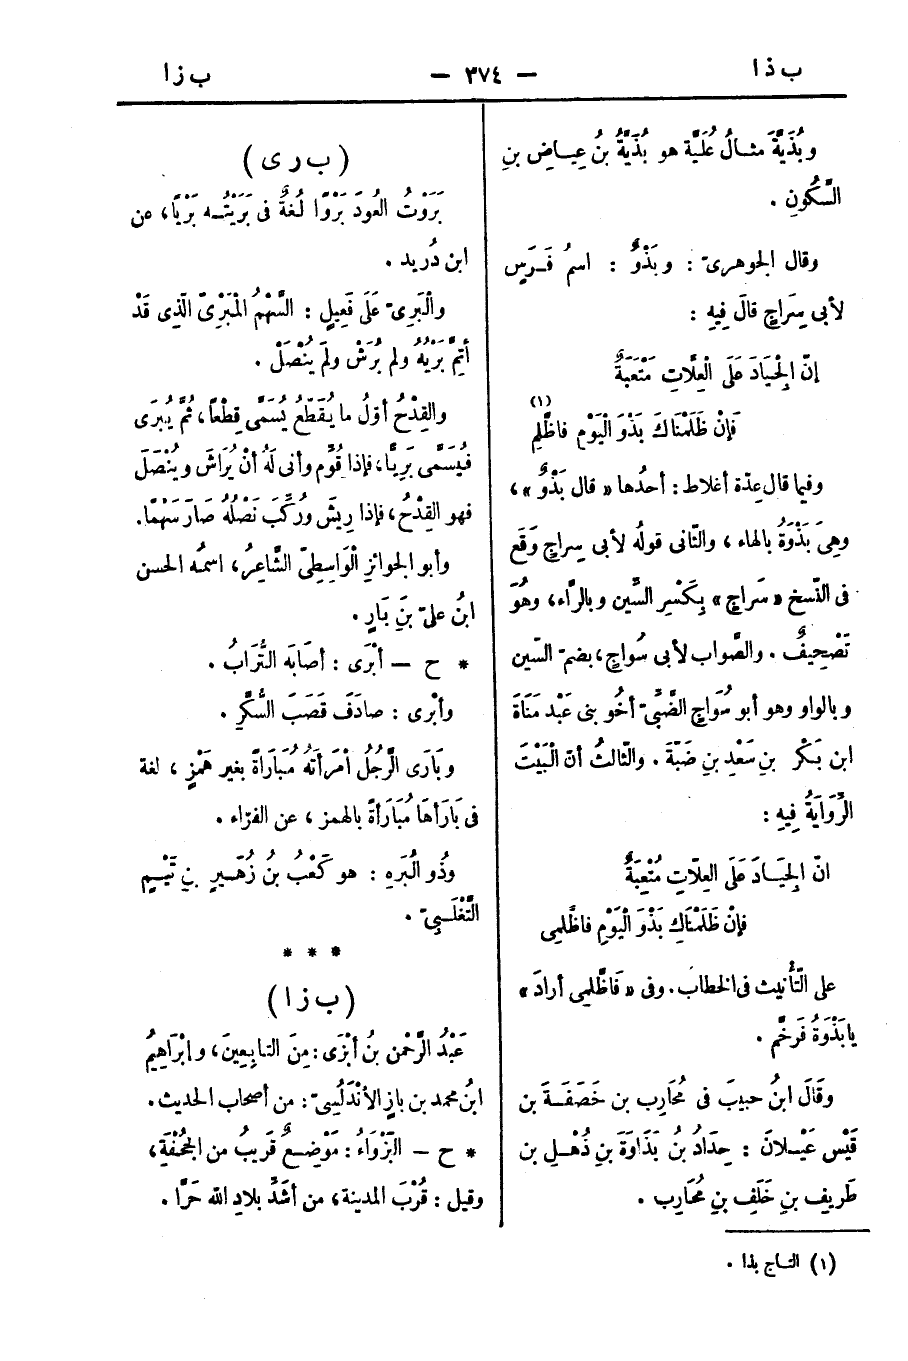 ب ذا — ٣٧٤ — ب زا
وبُذَيَّةَ مثالُ عُلَيَّة هو بُذَيَّةُ بنُ عِياضِ بنِ
السَّكُونِ .
وقال الجوهرىّ : وبَذْوٌ : اسمُ فَرَسٍ
لأبى سِرَاجٍ قالَ فِيهِ :
إنّ الجِيَادَ عَلَى الْعِلَّاتِ مَتْعَبَةٌ
فَإنْ ظَلَمْنَاكَ بَذْوَ الْيَوْمِ فاظَّلِمِ (١)
وفيما قال عِدّة أغلاط : أحدُها « قال بَذْوٌ » ،
وهِىَ بَذْوَةُ بالهاء ، والثّانى قولُه لأبى سِراجٍ وَقَع
فى النّسخ « سَراجٍ » بِكَسْرِ السِّين وبالرَّاء، وهُوَ
تَصْحِيفٌ . والصَّواب لأبى سُواجٍ، بضمّ السّين
وبالواو وهو أبو سُوَاجٍ الضَّبِّىّ أخُو بنى عَبْد مَنَاةَ
ابن بَكْر بنِ سَعْدِ بنِ ضَبّة . والثّالثُ أنّ الْبَيْتَ
الرِّوَايَةُ فِيهِ :
انّ الجِيَادَ عَلَى العِلّاتِ مُتْعِبَةٌ
فإنْ ظَلَمْنَاكِ بَذْوَ الْيَوْمِ فاظَّلِمى
على التّأنيث فى الخطاب. وفى « فَاظَّلِمى أرادَ »
يا بَذْوَةُ فَرَخَّم .
وقَالَ ابنُ حبيبَ فى مُحَارِب بن خَصَفَةَ بن
قَيْس عَيْلانَ : حِدَادُ بنُ بَذَاوَةَ بنِ ذُهْلِ بن
طَرِيف بنِ خَلَفِ بنِ مُحَارِب .
(١) التاج بذا .
(ب رى)
بَرَوْتُ العُودَ بَرْوًا لُغةٌ فى بَرَيْتُه بَرْيًا، عن
ابن دُرِيد .
والْبَرِىّ عَلَى فَعِيلٍ : السَّهْمُ الْمَبْرِىّ الّذِى قَدْ
أُتِمَّ بَرْيُهُ ولم يُرَشْ ولَم يُنْصَلْ .
والقِدْحُ أوّلُ ما يُقَطّعُ يُسَمَّى قِطْعاً، ثُمَّ يُبرَى
فيُسَمَّى بَرِيًّا، فإذا قُوِّم وأنى لَهُ أنْ يُرَاشَ ويُنْصَلَ
فهو القِدْحُ، فإذا رِيشَ ورُكِّبَ نَصْلُهُ صَارَ سَهْمًا.
وأبو الجوائزِ الْوَاسِطِىّ الشَّاعِرُ، اسمُه الحسن
ابنُ علىّ بنَ بَارِى .
* ح — أبْرَى : أصَابَه التُّرَابُ .
وأبْرى : صادَفَ قَصَبَ السُّكَّرِ .
وبَارَى الرَّجُلُ امْرَأتَهُ مُبَارَاةً بغير هَمْزٍ ، لغة
فى بَارَأهَا مُبَارَأةً بالهمز ، عن الفرّاء .
وذُو الْبُرَهِ : هو كَعْبُ بنُ زُهَيرِ بنِ تَيْمٍ
التَّغْلَبِىّ .
* * *
(ب زا)
عَبْدُ الرَّحْمن بنُ أبْزَى : مِنَ التابِعِينَ، وإبْرَاهِيمُ
ابنُ محمد بن بازٍ الأنْدَلُسِىّ : من أصحاب الحديث .
* ح — البَزْوَاءُ : مَوْضِعٌ قَريبُ من الجُحْفَةِ،
وقيل : قُرْبَ المدينة، من أشَدِّ بلادِ الله حَرًّا .